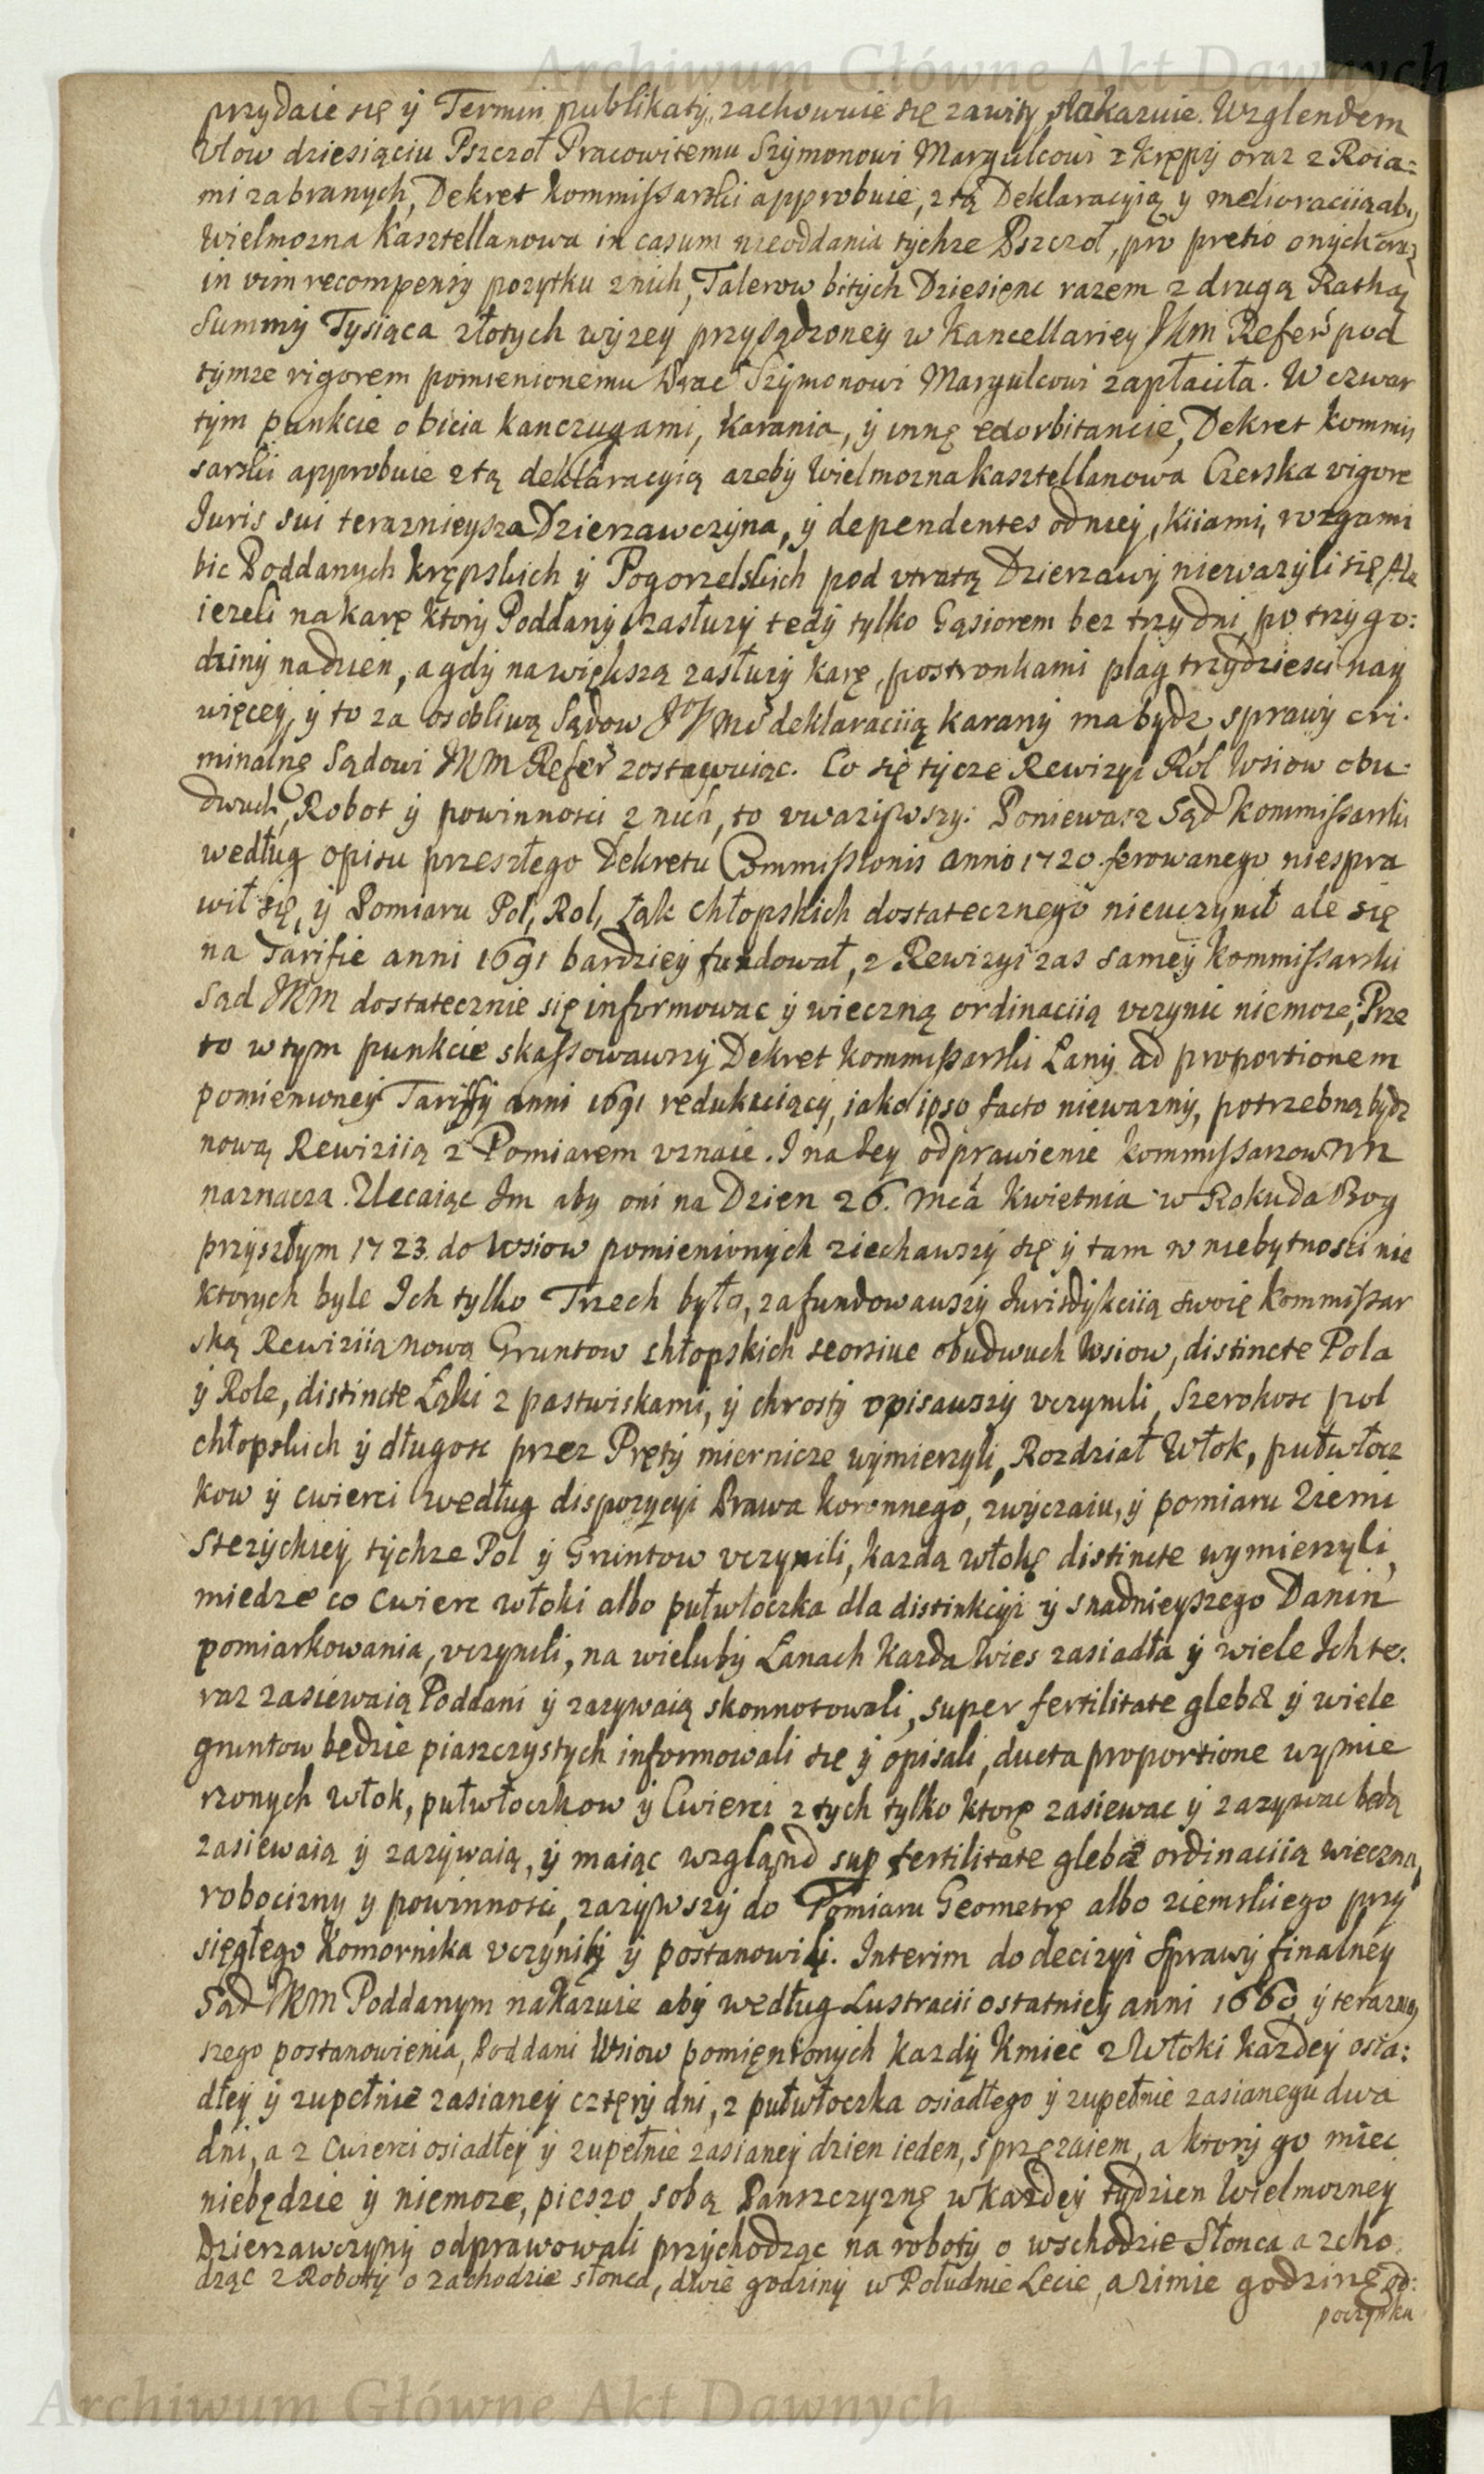 Archiwum Główne Akt Dawnych
przydaie się ÿ Termin publikaty, zachowuie się zawity nakazuie. Względem
Vlow dziesiąciu Pszczoł Pracowitemu Szÿmonowi Margulcowi z Krępÿ oraz z Roia:
mi zabranych, Dekret kommissarski approbuie, z tą Deklaracyią y melioraciią aby
Wielmozna Kasztellanowa in casum nieoddania tychze Pszczoł, pro pretio onÿch oraz
in vim recompensÿ pozytku z nich, Talerow bitÿch Dziesięnc razem z drugą Rathą
Summÿ Tysiąca złotych wÿzeÿ przysądzoneÿ w Kancellarieÿ JKM Refer pod
tÿmze rigorem pomienionemu Prac Szÿmonowi Margulcowi zapłaciła. W czwar
tÿm punkcie o bicia kanczugami, karania, ÿ innę exorbitancie, Dekret kommis
sarski approbuie z tą deklaracyią azebÿ Wielmozna kasztellanowa Czerska vigore
Juris sui teraznieysza Dzierzawczÿna, ÿ dependentes od nieÿ, kiiami, rozgami
bic Poddanych krępskich ÿ Pogorzelskich pod vtratą Dzierzawÿ niewazÿli się, Ale
iezeli na karę ktorÿ Poddanÿ zasłuzÿ tedÿ tylko Gąsiorem bez trzÿ dni, po trzÿ go:
dzinÿ na dzien, a gdÿ na większą zasłuzÿ karę, postronkami plag trzÿdziesci naÿ
więceÿ, ÿ to za osobliwą Sądow deklaraciią karanÿ ma bydz, sprawÿ cri:
minalnę Sądowi JKM Refer zostawuiąc. Co się tÿcze Rewizyi Rol Wsiow obu:
dwuch, Robot ÿ powinnosci z nich, to vwazÿwszy: Poniewasz Sąd kommissarski
według opisu przeszłego Dekretu Commissionis anno 1720 ferowanego niespra
wił się, ÿ Pomiaru Pol, Rol, Łąk chłopskich dostatecznego nieuczynił ale się
na Tarifie anni 1691 bardzieÿ fundował, z Rewizyi zas sameÿ kommissarski
Sąd JKM dostatecznie się informowac ÿ wieczną ordinaciią vczynic niemoze; Prze
to w tym punkcie skassowawszÿ Dekret kommissarski Lanÿ ad proportionem
pomienioneÿ Tariffÿ anni 1691 redukuiącÿ, iako ipso facto niewaznÿ, potrzebną bÿdz
nową Rewiziią z Pomiarem vznaie. I na Jeÿ odprawienie kommissarzow NN
naznacza. Zlecaiąc Im aby oni na Dzien 26. Mca Kwietnia w Roku da Bog
przyszłym 1723. do Wsiow pomienionych ziechawszÿ się ÿ tam w niebytnosci nie
ktorych byle Ich tylko Trzech było, zafundowawszÿ Jurisdykciią swoię kommissar
ską Rewiziią nową Gruntow chłopskich seorsiue obudwuch Wsiow, distincte Pola
ÿ Role, distincte Łąki z pastwiskami, ÿ chrostÿ opisawszÿ vczynili, Szerokosc pol
chłopskich ÿ długosc przez Prętÿ miernicze wÿmierzÿli, Rozdział Włok, pułwłocz
kow ÿ cwierci według dispozycyi Prawa koronnego, zwyczaiu, ÿ pomiaru Ziemi
Stezÿckieÿ tÿchze Pol ÿ Gruntow vczynili, kazdą włokę distincte wymierzÿli,
miedze co cwierc włoki albo pułwłoczka dla distinkcyi ÿ snadnieyszego Danin
pomiarkowania, vczynili, na wielubÿ Lanach Kazda Wies zasiadła ÿ wiele Ich te:
raz zasiewaią Poddani ÿ zazywaią skonnotowali, super fertilitate glebæ ÿ wiele
gruntow będzie piasczystych informowali się ÿ opisali, ducta proportione wymie
rzonych włok, pułwłoczkow ÿ Cwierci z tych tylko ktorę zasiewac ÿ zazywac będą
zasiewaią ÿ zazÿwaią, ÿ maiąc wzgląnd sup fertilitate glebæ ordinaciią wieczną
robocizny y powinnosci, zazÿwszÿ do Pomiaru Geometrę albo ziemskiego przÿ
sięgłego Komornika vczynilÿ ÿ postanowili. Interim do decizyi Sprawÿ finalneÿ
Sąd JKM Poddanym nakazuie abÿ według Lustracii ostatnieÿ anni 1660 ÿ terazniey
szego postanowienia, Poddani Wsiow pomięnionych kazdÿ Kmiec z Włoki kazdeÿ osia:
dłeÿ ÿ zupełnie zasianeÿ cztęrÿ dni, z pułwłoczka osiadłego ÿ zupełnie zasianego dwa
dni, a z cwierci osiadłeÿ ÿ zupełnie zasianeÿ dzien ieden, sprzęzaiem, a ktorÿ go miec
niebędzie ÿ niemoze, pieszo sobą Panszczyznę w kazdeÿ tydzien Wielmozneÿ
Dzierzawczynÿ odprawowali przÿchodząc na robotÿ o wschodzie Słonca a zcho
dząc z Robotÿ o zachodzie słonca, dwie godzinÿ w Południe Lecie, a zimie godzinę od:
poczynku
Archiwum Główne Akt Dawnych